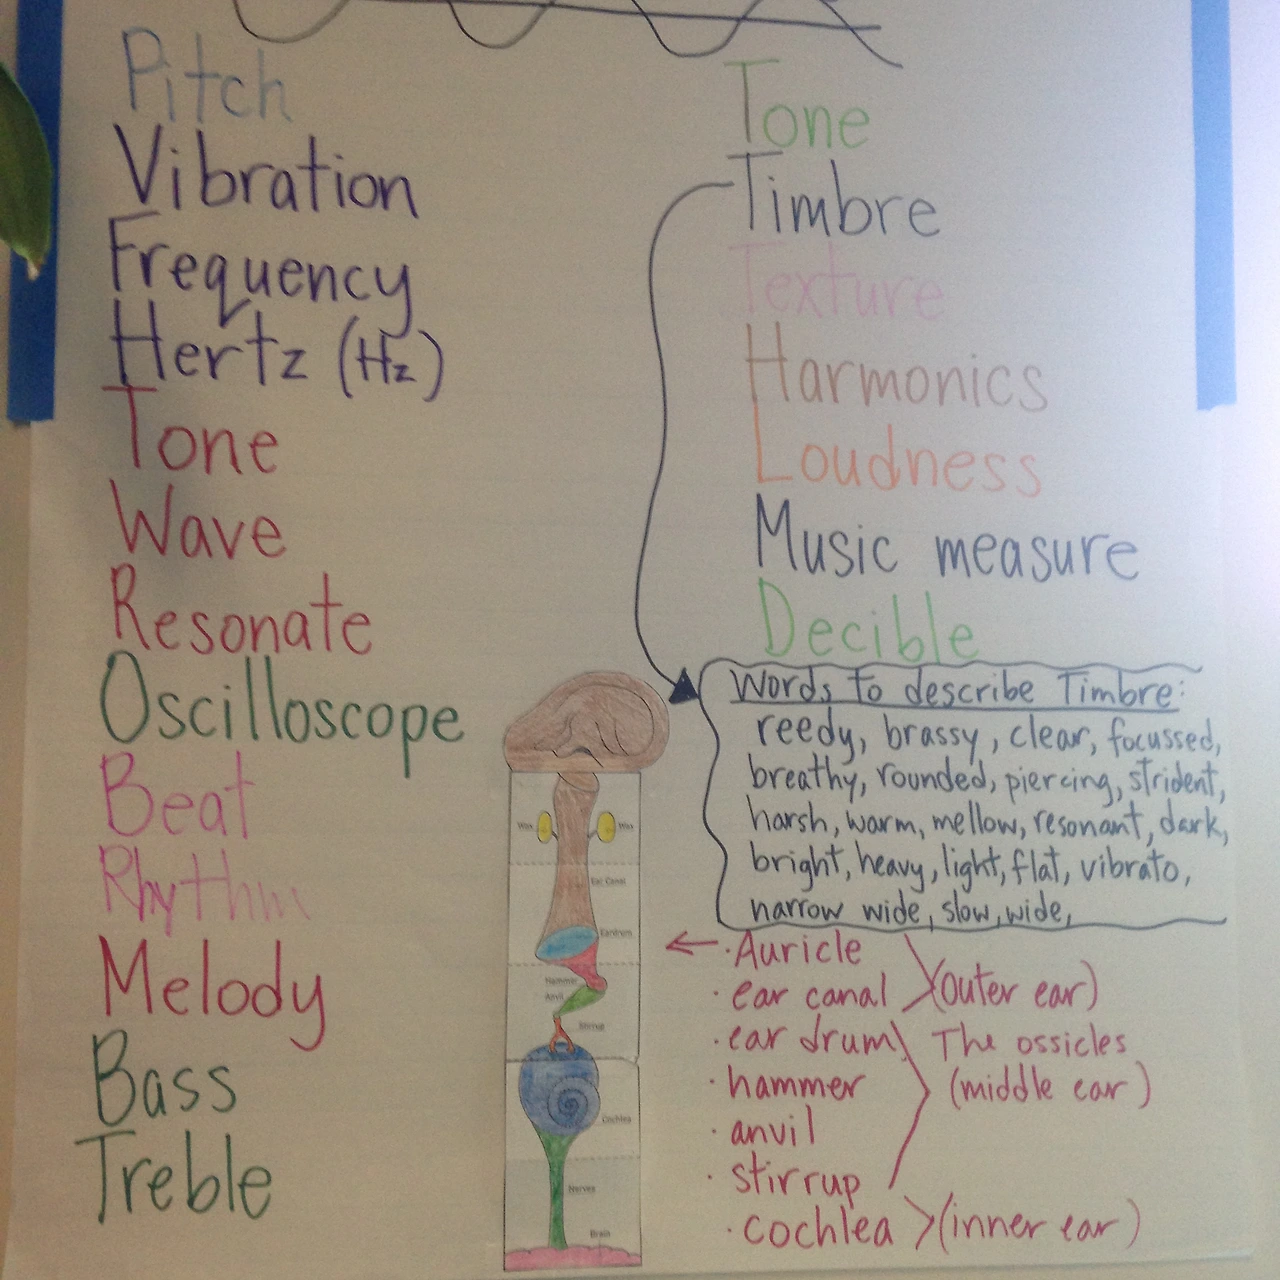 Pitch
Vibration
Frequency
Hertz (Hz)
Tone
Wave
Resonate
Oscilloscope
Beat
Rhythm
Melody
Bass
Treble
Tone
Timbre
Texture
Harmonics
Loudness
Music measure
Decible
Words to describe Timbre:
reedy, brassy, clear, focussed,
breathy, rounded, piercing, strident,
harsh, warm, mellow, resonant, dark,
bright, heavy, light, flat, vibrato,
narrow wide, slow, wide,
· Auricle
· ear canal (outer ear)
· ear drum The ossicles
· hammer (middle ear)
· anvil
· stirrup
· cochlea (inner ear)
Wax Wax
Ear Canal
Eardrum
Hammer
Anvil
Stirrup
Cochlea
Nerves
Brain